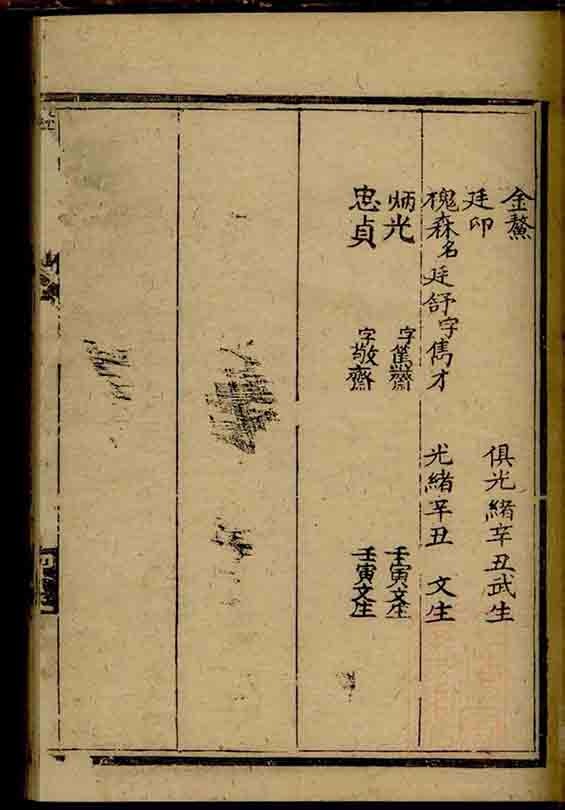 金鰲
廷印
俱光緒辛丑武生
槐森名廷舒字雋才
光緒辛丑 文生
炳光 字篤齋 壬寅文生
忠貞 字敬齋 壬寅文生